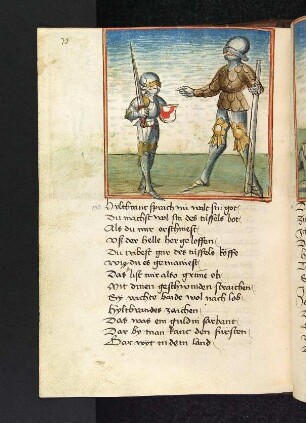 Hyltbrant sprach nů walt sin got
Du machst wol sin des tüffels bot
Als du mir erschinest
Vß der helle her geloffen
Du tribest gar des tüffels
Wig du es gemainest
Das list mir also grime ob
Mit dinen geschwinden straichen
Sy vachte baide wol nach lob
Hyltbrandes zaichen
Das was ein guldin sarbant
Dar by man kant den fürsten
Dar wyt in dem land